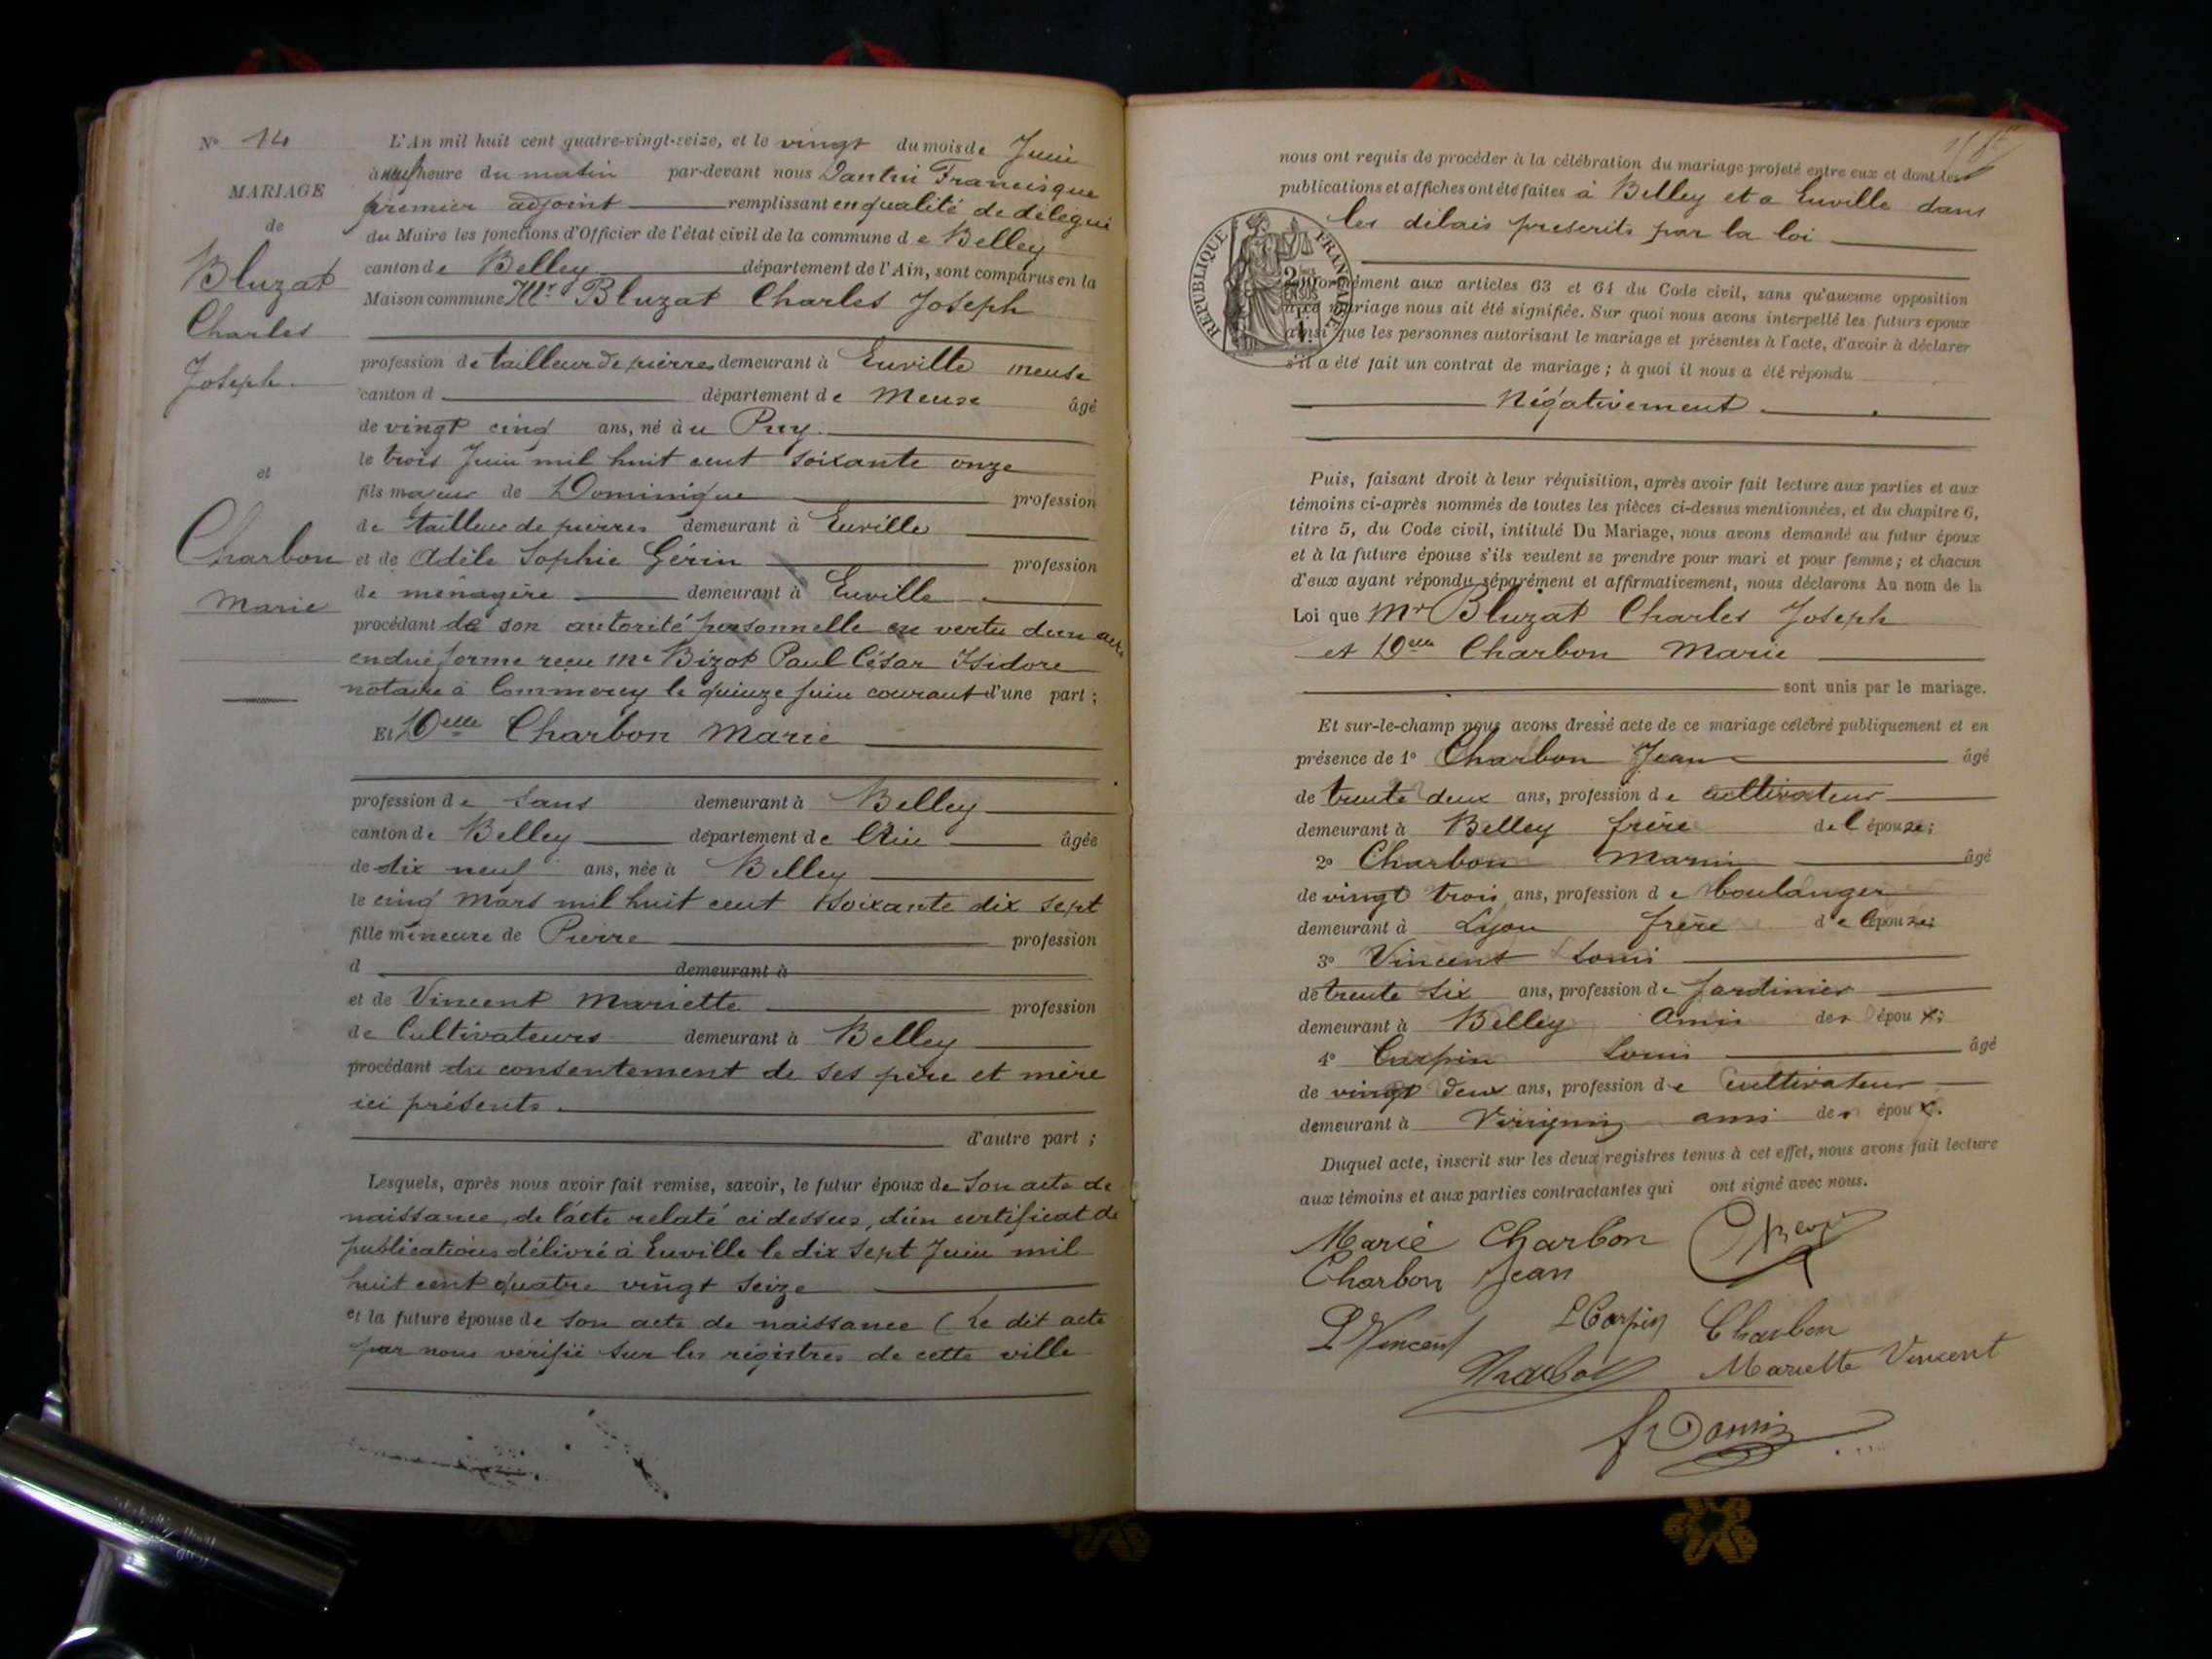 N° 14
MARIAGE
de
Bluzat
Charles
Joseph
et
Charbon
Marie
L'An mil huit cent quatre-vingt-seize, et le vingt du mois de Juin
à neuf heure du matin par-devant nous Dantin Francisque
premier adjoint remplissant en qualité de délégué
du Maire les fonctions d'Officier de l'état civil de la commune de Belley
canton de Belley département de l'Ain, sont comparus en la
Maison commune Mr Bluzat Charles Joseph
profession de tailleur de pierres demeurant à Euville meuse
canton d département de Meuse âgé
de vingt cinq ans, né à u Puy
le trois Juin mil huit cent soixante onze
fils majeur de Dominique profession
de tailleur de pierres demeurant à Euville
et de Adèle Sophie Gérin profession
de ménagère demeurant à Euville
procédant de son autorité personnelle en vertu d'un acte
en due forme reçu Me Bizot Paul César Isidore
notaire à Commercy le quinze juin courant d'une part ;
Et Delle Charbon Marie
profession de sans demeurant à Belley
canton de Belley département de l'Ain âgée
de dix neuf ans, née à Belley
le cinq Mars mil huit cent soixante dix sept
fille mineure de Pierre profession
d demeurant à
et de Vincent Mariette profession
de Cultivateurs demeurant à Belley
procédant du consentement de ses père et mère
ici présents.
d'autre part ;
Lesquels, après nous avoir fait remise, savoir, le futur époux de son acte de
naissance, de l'acte relaté ci dessus, d'un certificat de
publications délivré à Euville le dix sept Juin mil
huit cent quatre vingt seize
et la future épouse de son acte de naissance ( Le dit acte
par nous vérifié sur les régistres de cette ville
nous ont requis de procéder à la célébration du mariage projeté entre eux et dont les
publications et affiches ont été faites à Belley et a Euville dans
les délais prescrits par la loi
REPUBLIQUE FRANÇAISE
Conformément aux articles 63 et 64 du Code civil, sans qu'aucune opposition
à ce mariage nous ait été signifiée. Sur quoi nous avons interpellé les futurs époux
ainsi que les personnes autorisant le mariage et présentes à l'acte, d'avoir à déclarer
s'il a été fait un contrat de mariage ; à quoi il nous a été répondu
Négativement.
Puis, faisant droit à leur réquisition, après avoir fait lecture aux parties et aux
témoins ci-après nommés de toutes les pièces ci-dessus mentionnées, et du chapitre 6,
titre 5, du Code civil, intitulé Du Mariage, nous avons demandé au futur époux
et à la future épouse s'ils veulent se prendre pour mari et pour femme ; et chacun
d'eux ayant répondu séparément et affirmativement, nous déclarons Au nom de la
Loi que Mr Bluzat Charles Joseph
et Delle Charbon Marie
sont unis par le mariage.
Et sur-le-champ nous avons dressé acte de ce mariage célébré publiquement et en
présence de 1° Charbon Jean âgé
de trente deux ans, profession de cultivateur
demeurant à Belley frère de l épouse;
2° Charbon Marin âgé
de vingt trois ans, profession de boulanger
demeurant à Lyon frère de l'épouse;
3° Vincent Louis
de trente six ans, profession de Jardinier
demeurant à Belley Ami des époux;
4° Carpin Louis âgé
de vingt deux ans, profession de cultivateur
demeurant à Virignin ami des époux.
Duquel acte, inscrit sur les deux registres tenus à cet effet, nous avons fait lecture
aux témoins et aux parties contractantes qui ont signé avec nous.
Marie Charbon
Charbon Jean
L Vincent L Carpin Charbon
Mariette Vincent